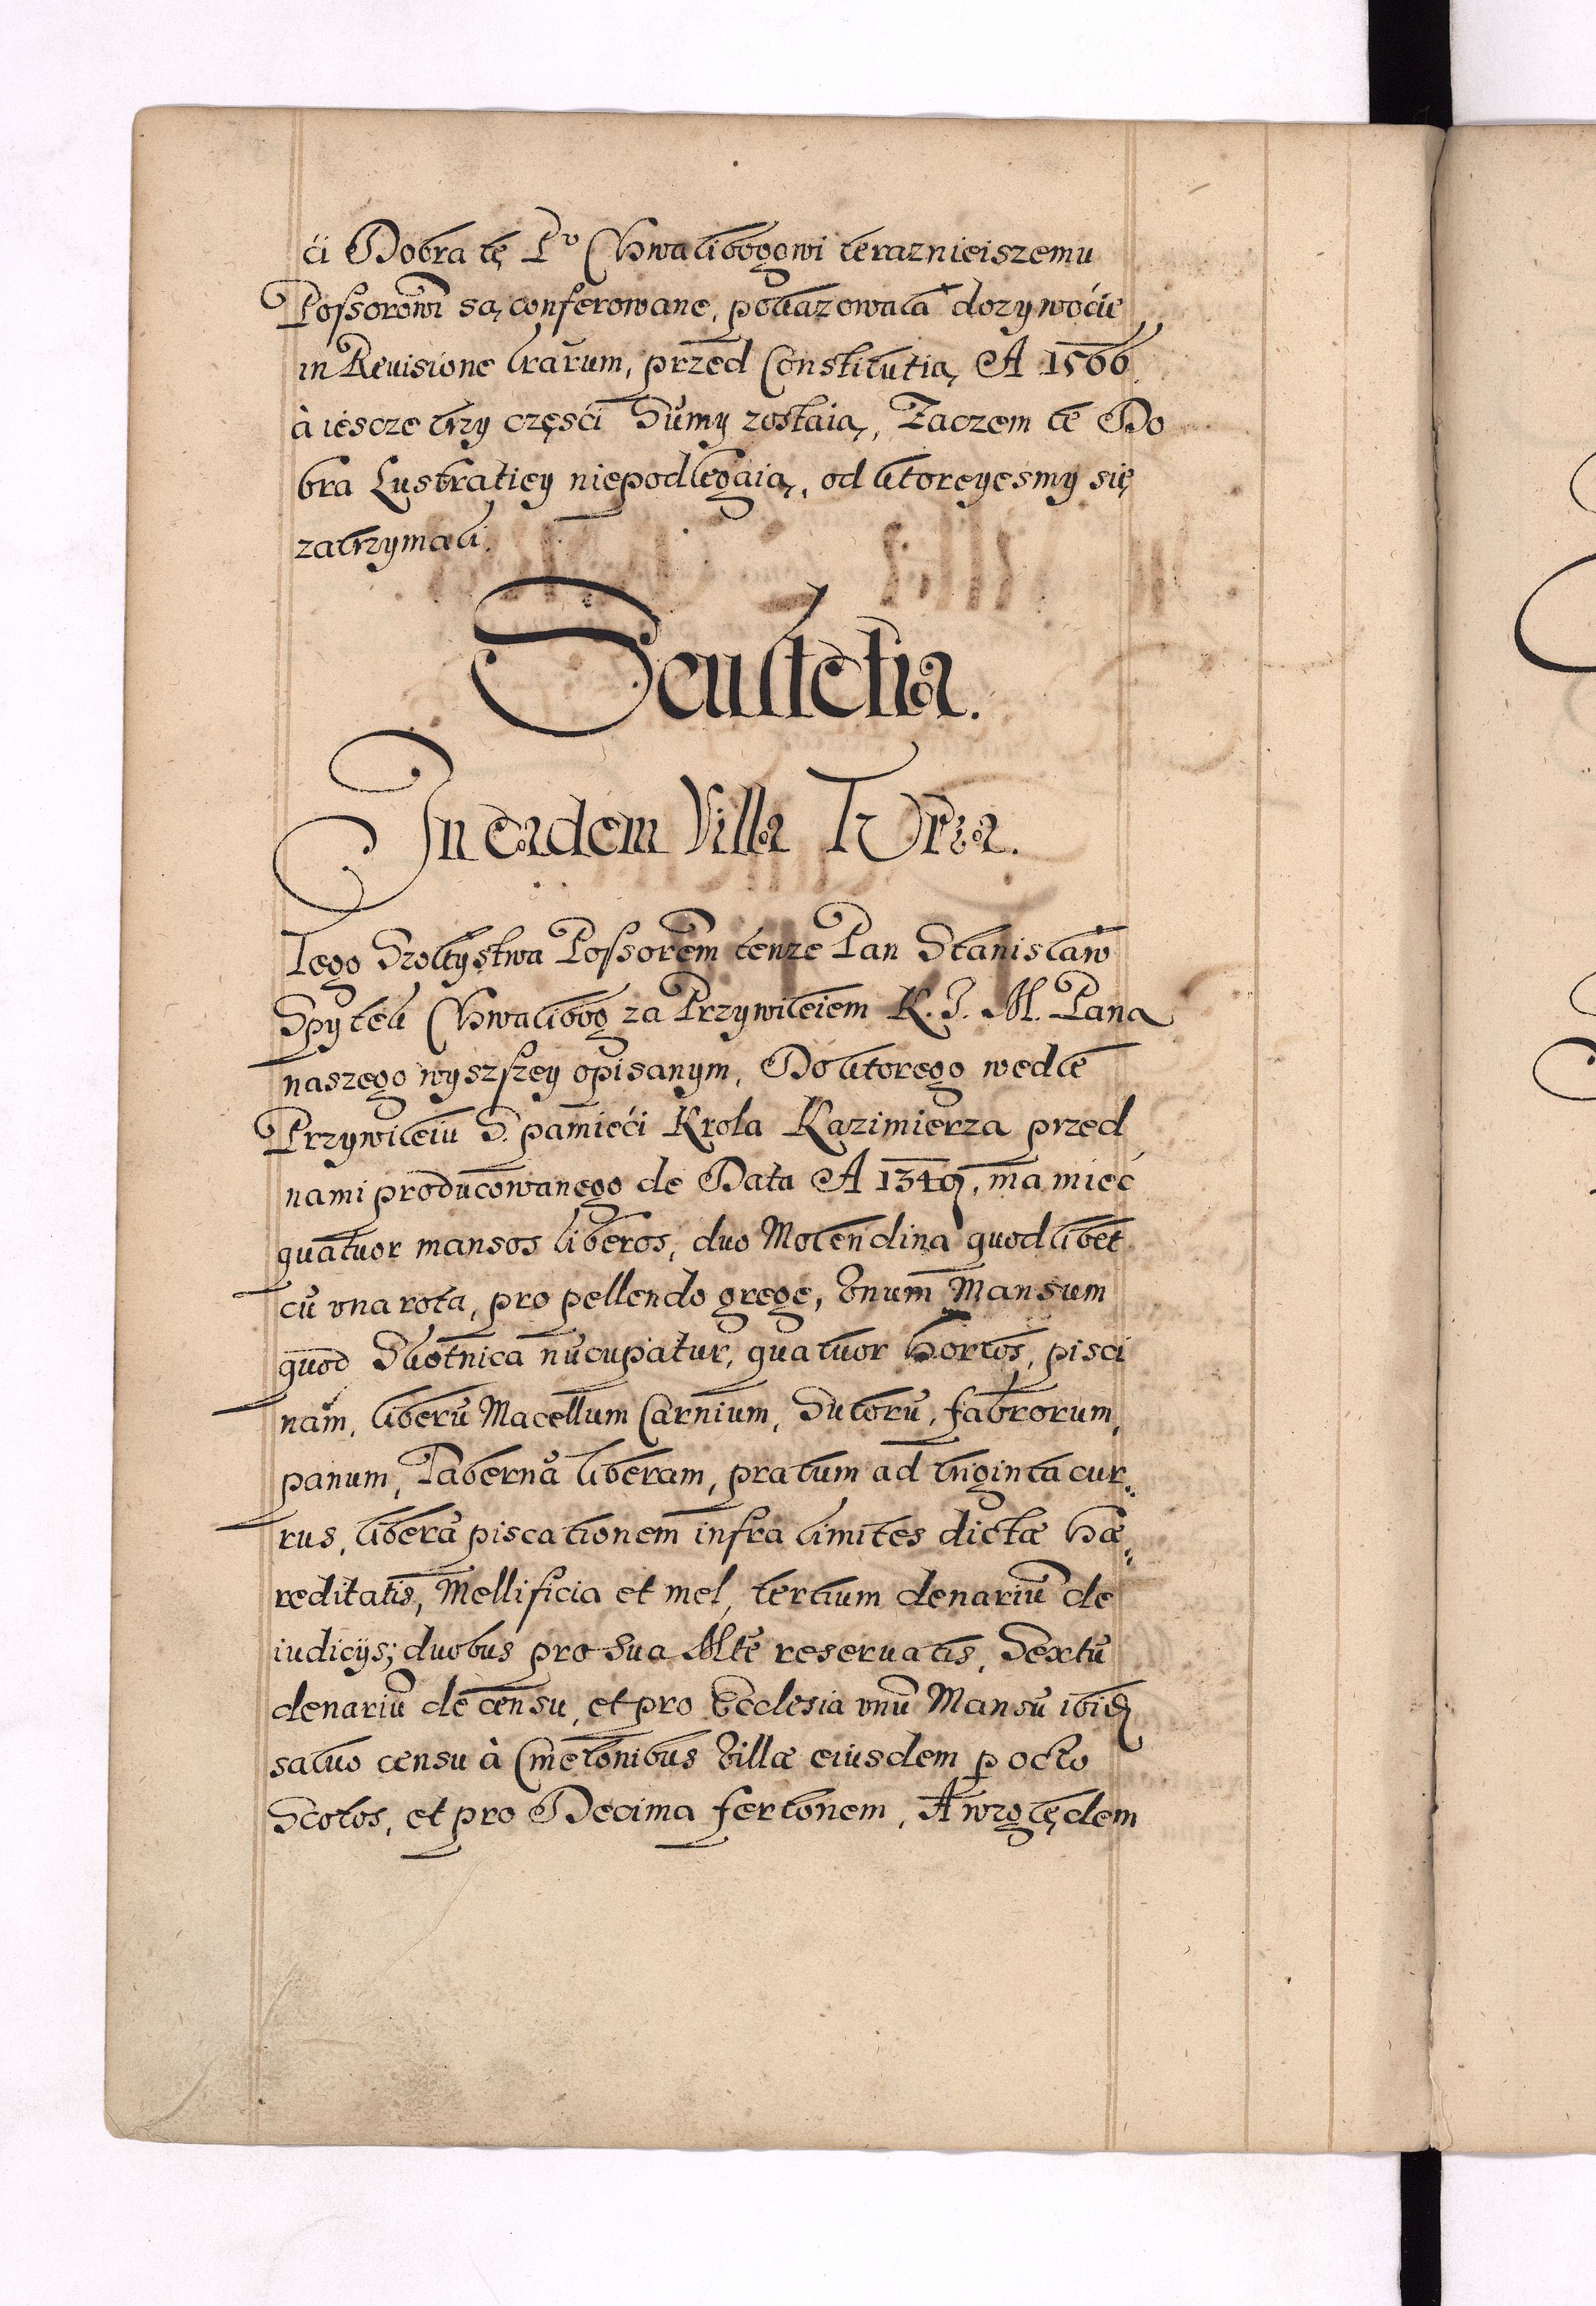 ći Dobra tę Pᵒ Chwalibogowi teraznieiszemu
Possorowi są conferowane, pokazowała dozywoćie
in Reuisione lrarum, przed Constitutią A 1566.
à iescze trzy częsći Sumy zostaią, Zaczem te Do
bra Lustratiey niepodlegaią, od ktoreyesmy się
zatrzymali.
Scultetia.
In eadem Villa
Tego Szoltystwa Possorem tenze Pan Stanisław
Spytek Chwalibog za Przywileiem K. J. M. Pana
naszego wyszszey opisanym, Do ktorego wedle
Przywileiu S. pamieći Krola Kazimierza przed
nami producowanego de Data A 1349, ma mieć
quatuor mansos liberos, duo Molendina quodlibet
cū vna rota, pro pellendo grege, Vnum Mansum
quod nūcupatur, quatuor hortos, pisci
nam, liberū Macellum Carnium, Sutorū, fabrorum,
panum, Tabernā liberam, pratum ad triginta cur„
rus, liberā piscationem infra limites dictæ hæ„
reditatis, Mellificia et mel, tertium denariū de
iudicijs; duobus pro Sua Mtē reseruatis, Sextū
denariū de censu, et pro Ecclesia vnū Mansū ibid
saluo censu à Cmetonibus Villæ eiusdem p octo
Scotos, et pro Decima fertonem, A względem